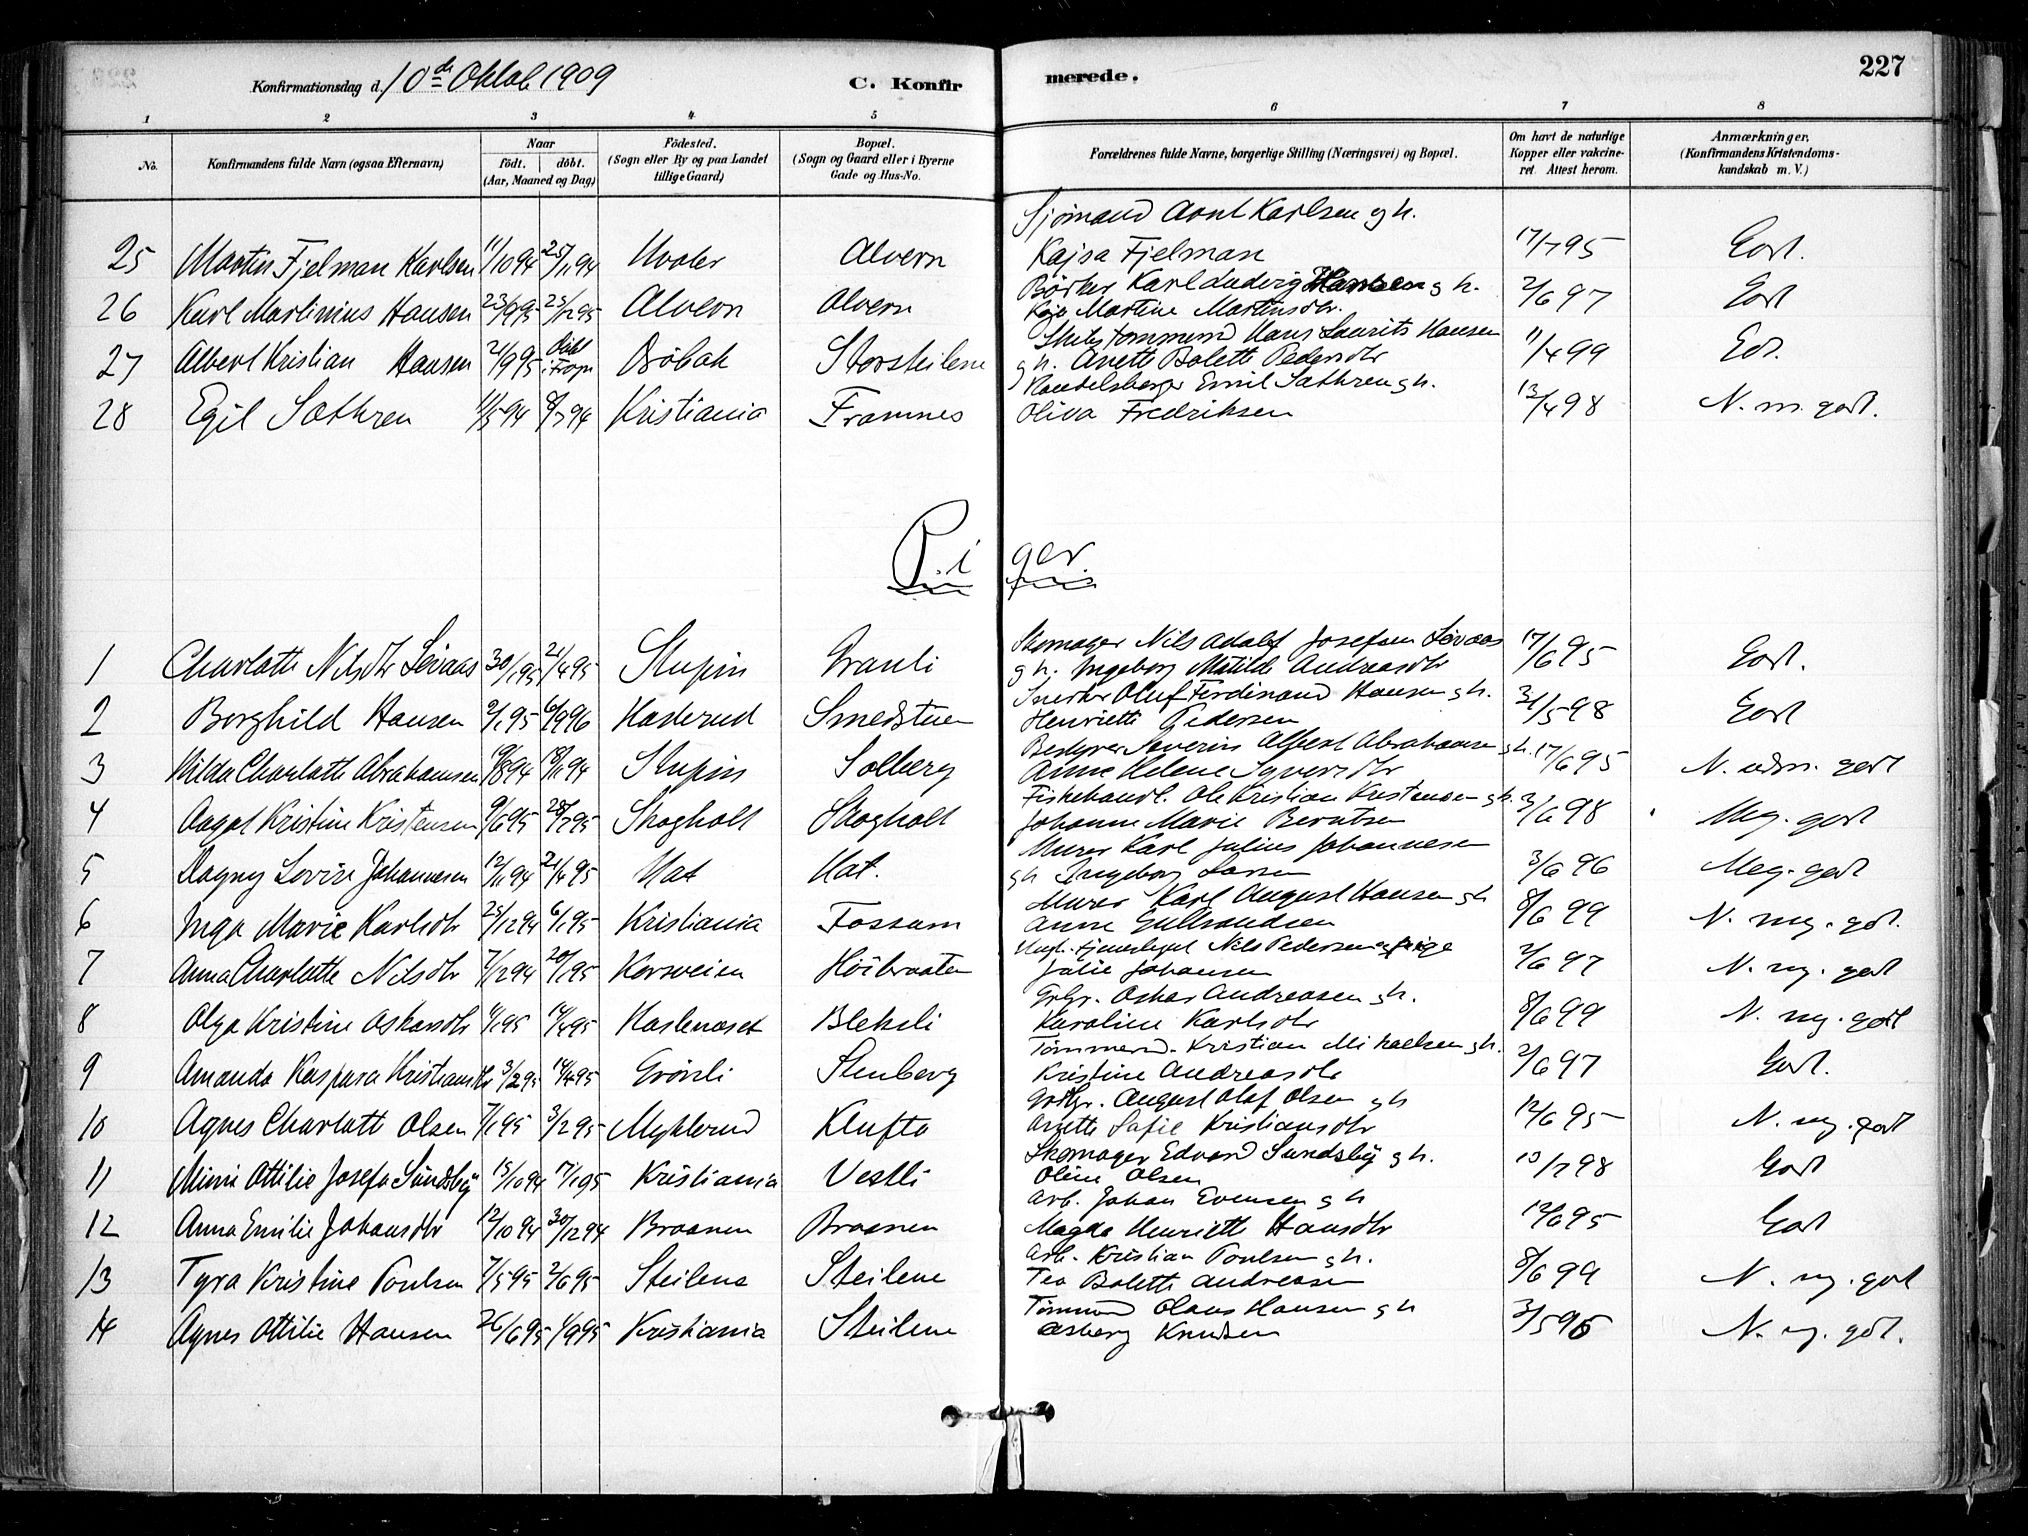 227
Konfirmationsdag d. 10de Oktob 1909 C. Konfirmerede.
1 2 3 4 5 6 7 8
No. Konfirmandens fulde Navn (ogsaa Efternavn) Naar födt. döbt. (Aar, Maaned og Dag) Födested. (Sogn eller By og paa Landet tillige Gaard) Bopæl. (Sogn og Gaard eller i Byerne Gade og Hus-No. Forældrenes fulde Navne, borgerlige Stilling (Næringsvei) og Bopæl. Om havt de naturlige Kopper eller vakcineret. Attest herom. Anmærkninger. (Konfirmandens Kristendomskundskab m. V.)
Sjömand Arnt Karlsen g h.
25 Martin Fjelman Karlsen 11/10 94 25/11 94 Hvaler Alvern Kajsa Fjelman 17/7 95 Godt.
Karl Ludvig Hansen g h.
26 Karl Martinius Hansen 23/9 95 25/12 95 Alvern Alvern Martine Martinsdtr. 2/6 97 Godt
Hans Laurits Hansen
27 Albert Kristian Hansen 21/9 95 Döbt i Frogn Dröbak Storsteilene g h. Anette Bolette Pedersdtr 11/4 99 Gdt.
Emil Sæthren g h.
28 Egil Sæthren 11/5 94 8/7 94 Kristiania Framnes Oliva Fredriksen 13/4 98 N. m. godt.
Piger.
Skomager Nils Adolf Josefsen Lövaas
1 Charlotte Nilsdtr Lövaas 30/1 95 21/4 95 Stupin Granli g h. Ingeborg Matilde Andreasdtr 17/6 95 Godt.
Snedker Oluf Ferdinand Hansen g h.
2 Borghild Hansen 2/1 95 6/9 96 Haslerud Smedstuen Henriette Pedersen 31/5 98 Godt
Bestyrer Severin Albert Abrahamsen g h.
3 Hilda Charlotte Abrahamsen 9/8 94 18/11 94 Stupin Solberg Anne Helene Syversdtr 17/6 95 N. udm. godt
Fiskehandl. Ole Kristian Kristensen g h.
4 Aagot Kristine Kristensen 9/6 95 28/7 95 Skogholt Skogholt Johanne Marie Berntsen 3/6 98 Meg. godt
Murer Karl Julius Johannesen
5 Dagny Lovise Johannesen 12/11 94 21/4 95 Hat Hat. g h Ingeborg Larsen 3/6 96 Meg. godt
Murer Karl August Hansen g h
6 Inga Marie Karlsdtr 25/12 94 6/1 95 Kristiania Fossum Anne Gulbrandsen 8/6 99 N. mg. gdt.
Nils Pedersen og pige
7 Anna Charlotte Nilsdtr 7/12 94 20/1 95 Korsveien Höibraaten Julie Johansen 2/6 97 N. mg. godt
Oskar Andreasen g h.
8 Olga Kristine Oskarsdtr 4/1 95 14/4 95 Haslenæset Blekeli Karoline Karlsdtr 8/6 99 N. mg. godt
Tömmerm. Kristian Mikaelsen g h.
9 Amanda Kaspara Kristiansdtr 3/2 95 14/4 95 Grönli Stenberg Kristine Andreasdtr 2/6 97 Godt.
August Olaf Olsen g h
10 Agnes Charlott Olsen 7/1 95 3/2 95 Myklerud Klufta Anette Sofie Kristiansdtr 12/6 95 N. mg. godt
Skomager Edvard Sundsby g h.
11 Mimi Ottilie Josefa Sundsby 15/10 94 17/1 95 Kristiania Vestli Oline Olsen 13/7 98 Godt
Arb. Johan Evensen g h
12 Anna Emilie Johansdtr 12/10 94 30/12 94 Braanen Braanen Magda Henriette Hansdtr 12/6 95 Godt
Arb. Kristian Poulsen g h.
13 Tyra Kristine Poulsen 7/5 95 2/6 95 Steilene Steilene Tea Bolette Andreasen 8/6 99 N. mg. godt
Tömmerm Olaus Hansen g h
14 Agnes Ottilie Hansen 26/6 95 1/9 95 Kristiania Steilene Asberg Knudsen 3/5 96 N. mg. gdt.